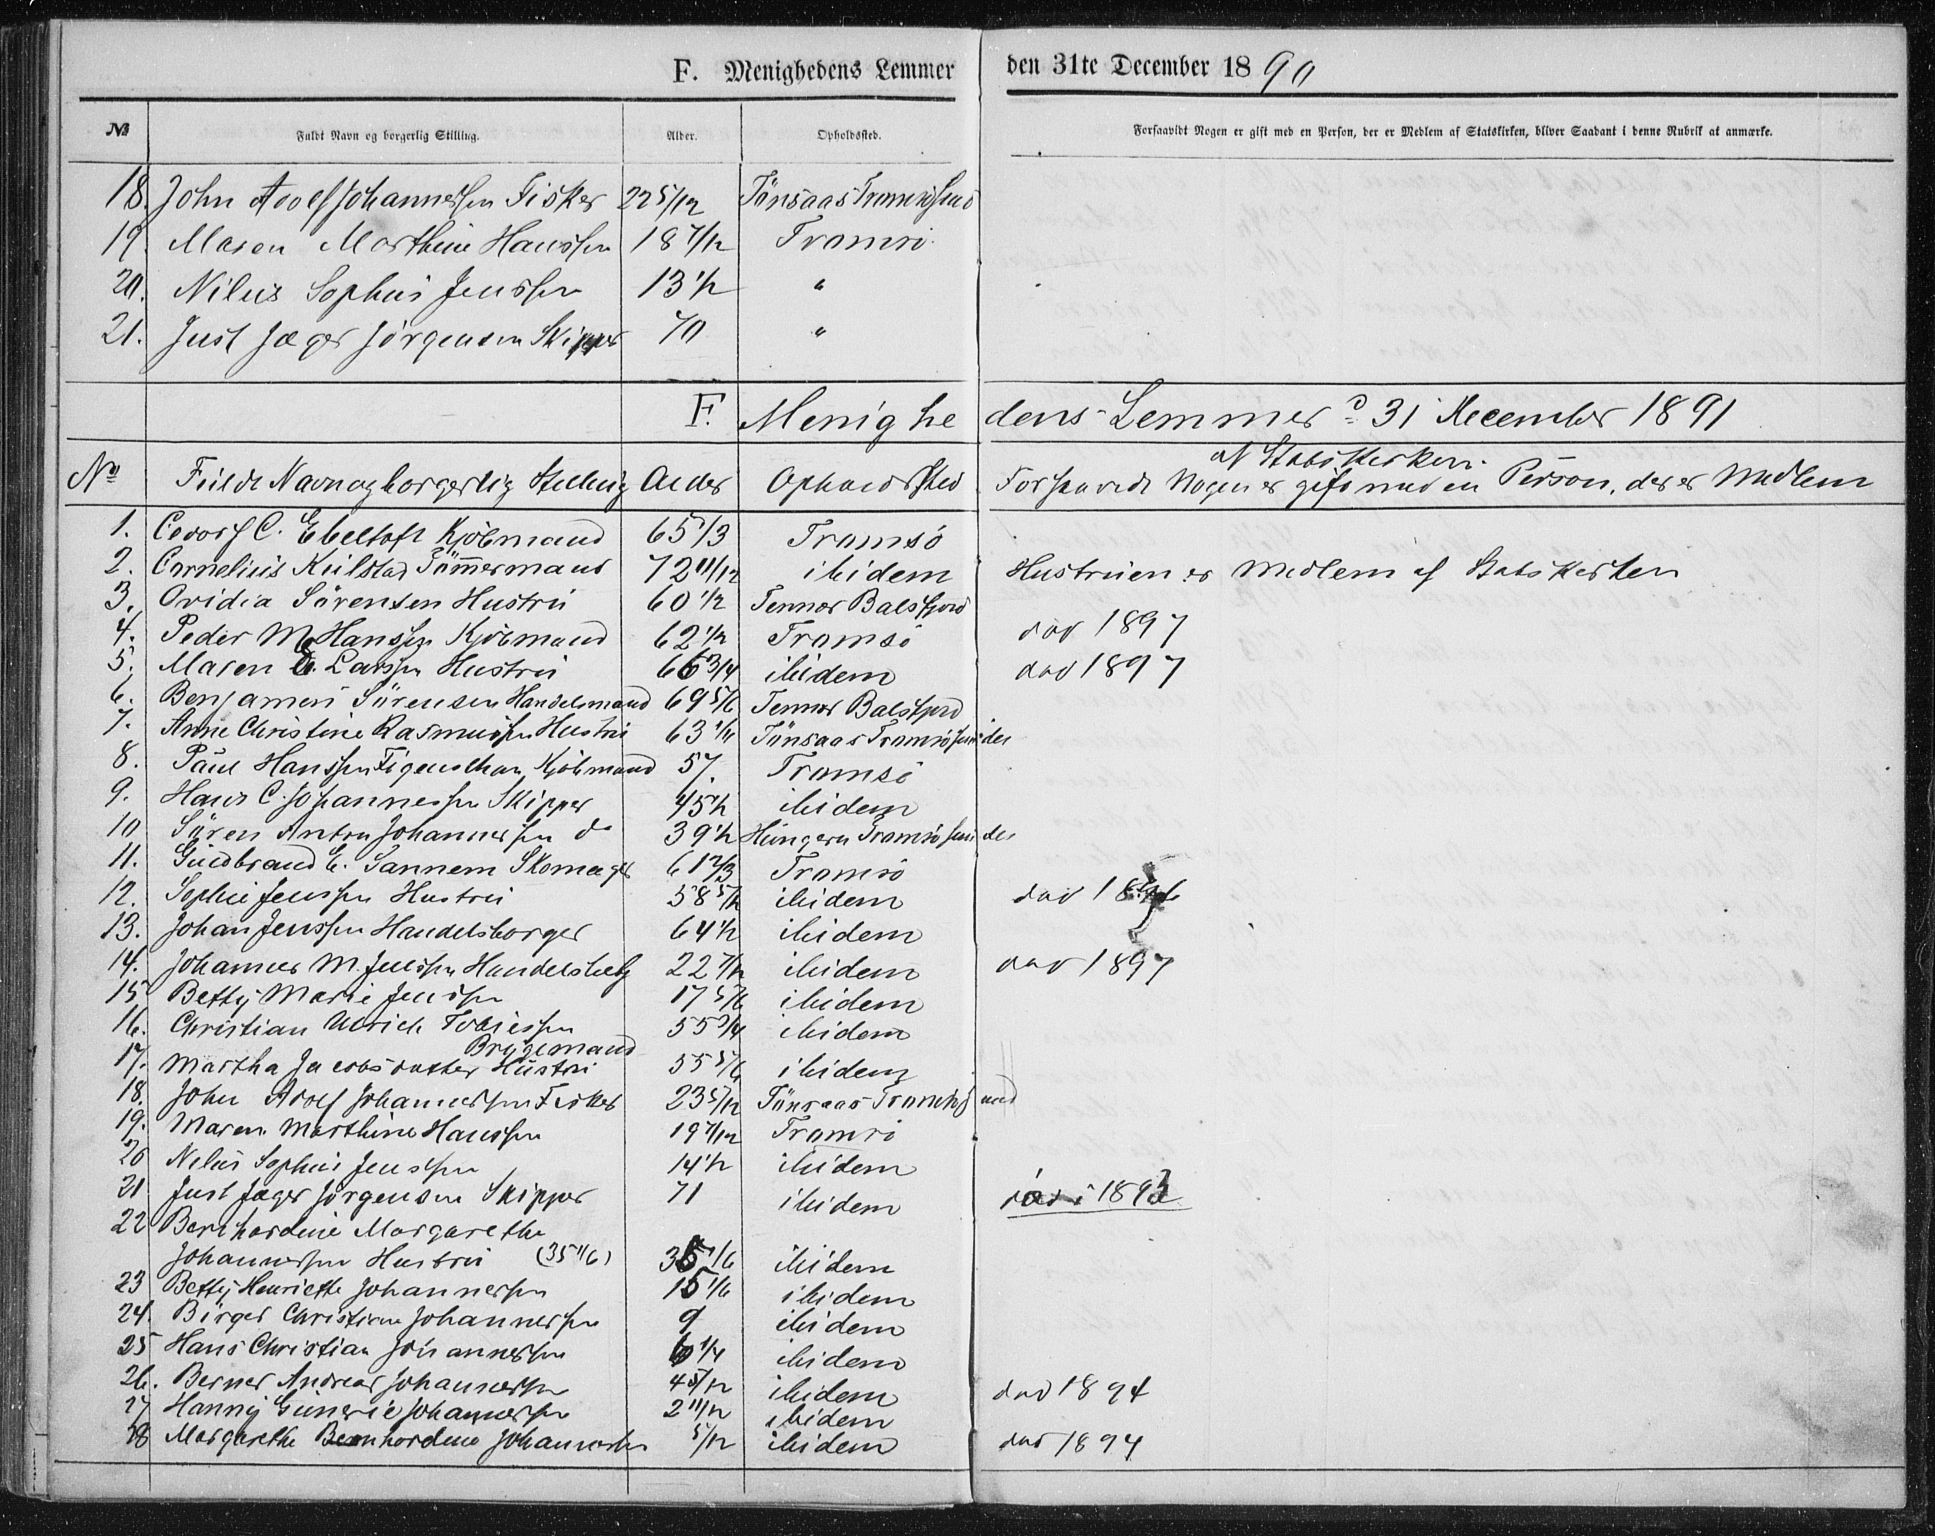 F. Menighedens Lemmer den 31te December 1890
№ Fuldt Navn og borgerlig Stilling. Alder. Opholdssted. Forsaavidt Nogen er gift med en Person, der er Medlem af Statskirken, bliver Saadant i denne Rubrik at anmærke.
18. John Adolf Johannessen Fisker 22 5/12 Tönsaas Tromsösund
19. Maren Marthine Hanssen 18 7/12 Tromsö
20. Nilus Sophus Jenssen 13 1/2 "
21. Just Jæger Jörgensen Skipper 70 "
F. Menighedens Lemmer d 31 December 1891
af Statskirken.
No Fuldt Navn og borgerlig Stilling Alder Opholdssted Forsaavidt Nogen er gift med en Person, der er Medlem
1. C. Ebeltoft Kjöbmand 65 1/3 Tromsö
2. Cornelius Kulstad Tömmermand 72 11/12 ibidem Hustruen er Medlem af Statskirken
3. Ovidia Sörensen Hustru 60 1/2 Tennes Balsfjord
4. Peder M Hanssen Kjöbmand 62 1/2 Tromsö död 1897
5. Maren E. Larssen Hustru 66 3/4 ibidem död 1897
6. Benjamin Sörensen Handelsmand 69 5/6 Tennes Balsfjord
7. Anne Christine Rasmussen Hustru 63 Tönsaas Tromsösundet
8. Paul Hanssen Figenschau Kjöbmand 57. Tromsö
9. Hans C. Johannessen Skipper 45 1/2 ibidem
10 Sören Anton Johannessen do 39 1/2 Hungeren Tromsösundet
11. Gudbrand E. Sannem Skomager 61 2/3 Tromsö
12. Sophie Jenssen Hustru 58 5/12 ibidem död
13. Johan Jenssen Handelsborger 64 1/2 ibidem
14. Johannes M. Jenssen 22 7/12 ibidem död 1897
15 Betty Marie Jenssen 17 5/6 ibidem
16. Christian Ulrich Tobiessen 55 3/4 ibidem
Bryggemand
17. Martha Jacobsdatter Hustru 55 5/6 ibidem
18. John Adolf Johannessen Fisker 23 5/12 Tönsaas Tromsösund
19. Maren Marthine Hanssen 19 7/12 Tromsö
20 Nilus Sophus Jenssen 14 1/2 ibidem
21 Just Jæger Jörgensen Skipper 71 ibidem död i 1893
22 Bernhardine Margarethe
Johannessen Hustru (35 1/6) 35 1/6 ibidem
23 Betty Henriette Johannessen 15 1/6 ibidem
24. Birger Christian Johannessen 9 ibidem
25 Hans Christian Johannessen 6 1/4 ibidem
26. Berner Andreas Johannessen 4 5/12 ibidem död 1894
27 Hanny Gunerie Johannessen 2 11/12 ibidem
28 Margarethe Bernhardine Johannessen 5/12 ibidem död 1894